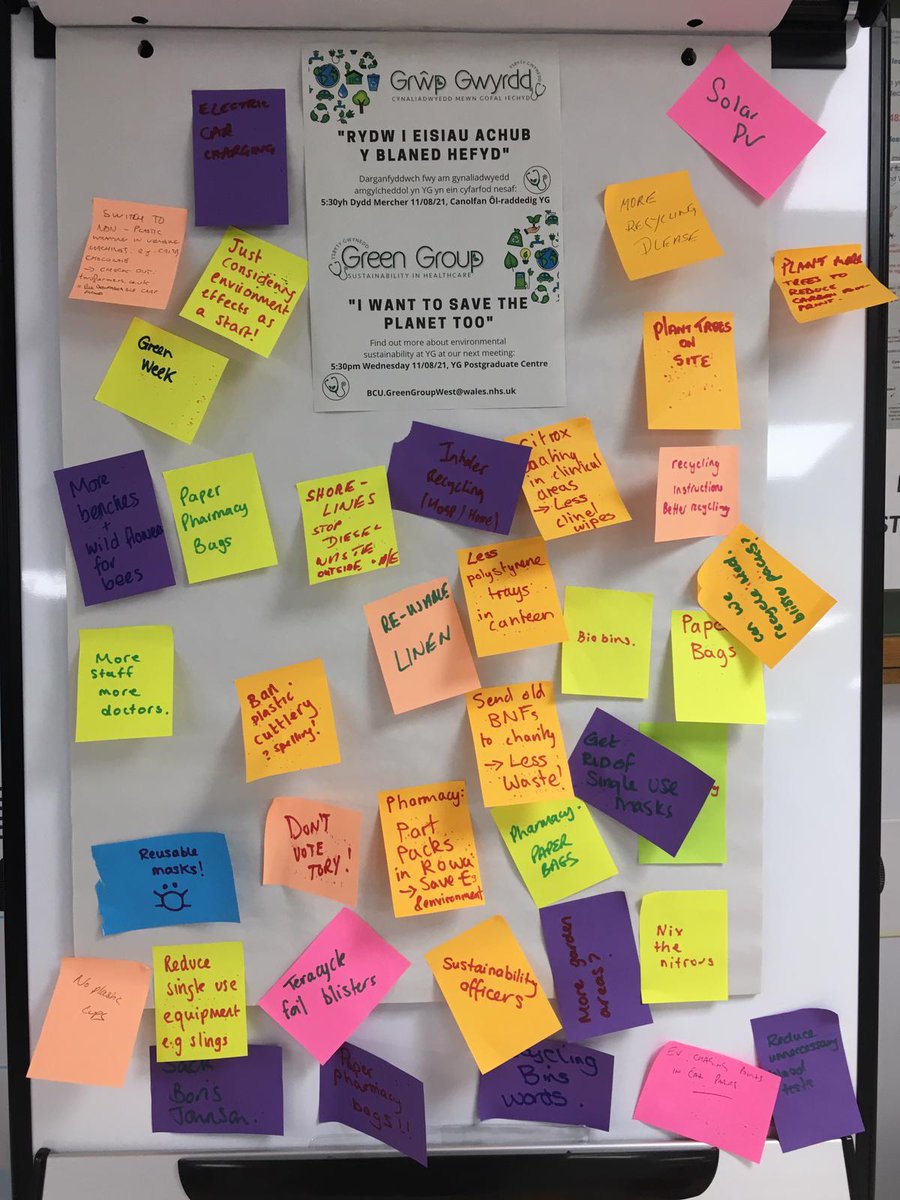 YSBYTY GWYNEDD
Grŵp Gwyrdd
CYNALIADWYEDD MEWN GOFAL IECHYD
"RYDW I EISIAU ACHUB
Y BLANED HEFYD"
Darganfyddwch fwy am gynaliadwyedd
amgylcheddol yn YG yn ein cyfarfod nesaf:
5:30yh Dydd Mercher 11/08/21, Canolfan Ôl-raddedig YG
YSBYTY GWYNEDD
Green Group
SUSTAINABILITY IN HEALTHCARE
"I WANT TO SAVE THE
PLANET TOO"
Find out more about environmental
sustainability at YG at our next meeting:
5:30pm Wednesday 11/08/21, YG Postgraduate Centre
BCU.GreenGroupWest@wales.nhs.uk
ELECTRIC
CAR
CHARGING
Solar
PV
SWITCH TO
NON-PLASTIC
IN VENDING
MACHINES. e.g.
CHOCOLATE
→ CHECK OUT:
Just
Considering
environment
effects as
a start!
MORE
RECYCLING
PLEASE
PLANT MORE
TREES TO
REDUCE
CARBON FOOT-
PRINT.
Green
Week
PLANT TREES
ON
SITE
More
benches
+
wild flowers
for
bees
Paper
Pharmacy
Bags
SHORE-
LINES
STOP
DIESEL
WASTE
OUTSIDE A/E
Inhaler
Recycling
(Hosp/Home)
Citrox
in clinical
areas
→ Less
clinel
wipes
recycling
Instructions
Better recycling
Less
polystyrene
trays
in
canteen
can we
recycle med.
blister packs?
RE-USABLE
LINEN
Bio bins.
Paper
Bags
More
staff
more
doctors.
Ban
plastic
cuttlery
? spelling!
Send old
BNFs
to charity
→ Less
Waste!
Get
RID of
Single Use
Masks
Reusable
masks!
DON'T
VOTE
TORY!
Pharmacy:
Part
Packs
in Rowa
→ Save £
& environment
Pharmacy-
PAPER
BAGS
No plastic
cups
Reduce
single use
equipment
e.g slings
Teracycle
foil blisters
Sustainability
officers!
More garden
areas?
Nix
the
nitrous
Sack
Boris
Johnson.
Paper
pharmacy
bags!!
Bins
words.
EV. CHARGING POINTS
IN CAR PARKS
Reduce
unnecessary
blood
tests